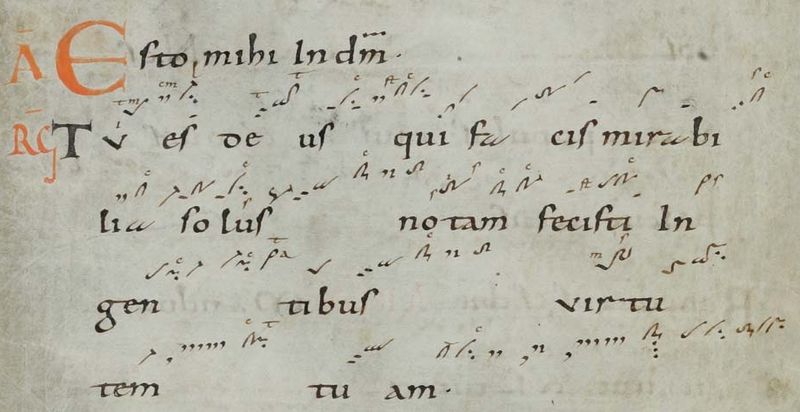 A Esto mihi In dm̄.
RG Tu es deus qui facis mirabi
lia solus notam fecisti In
gentibus virtu
tem tuam.